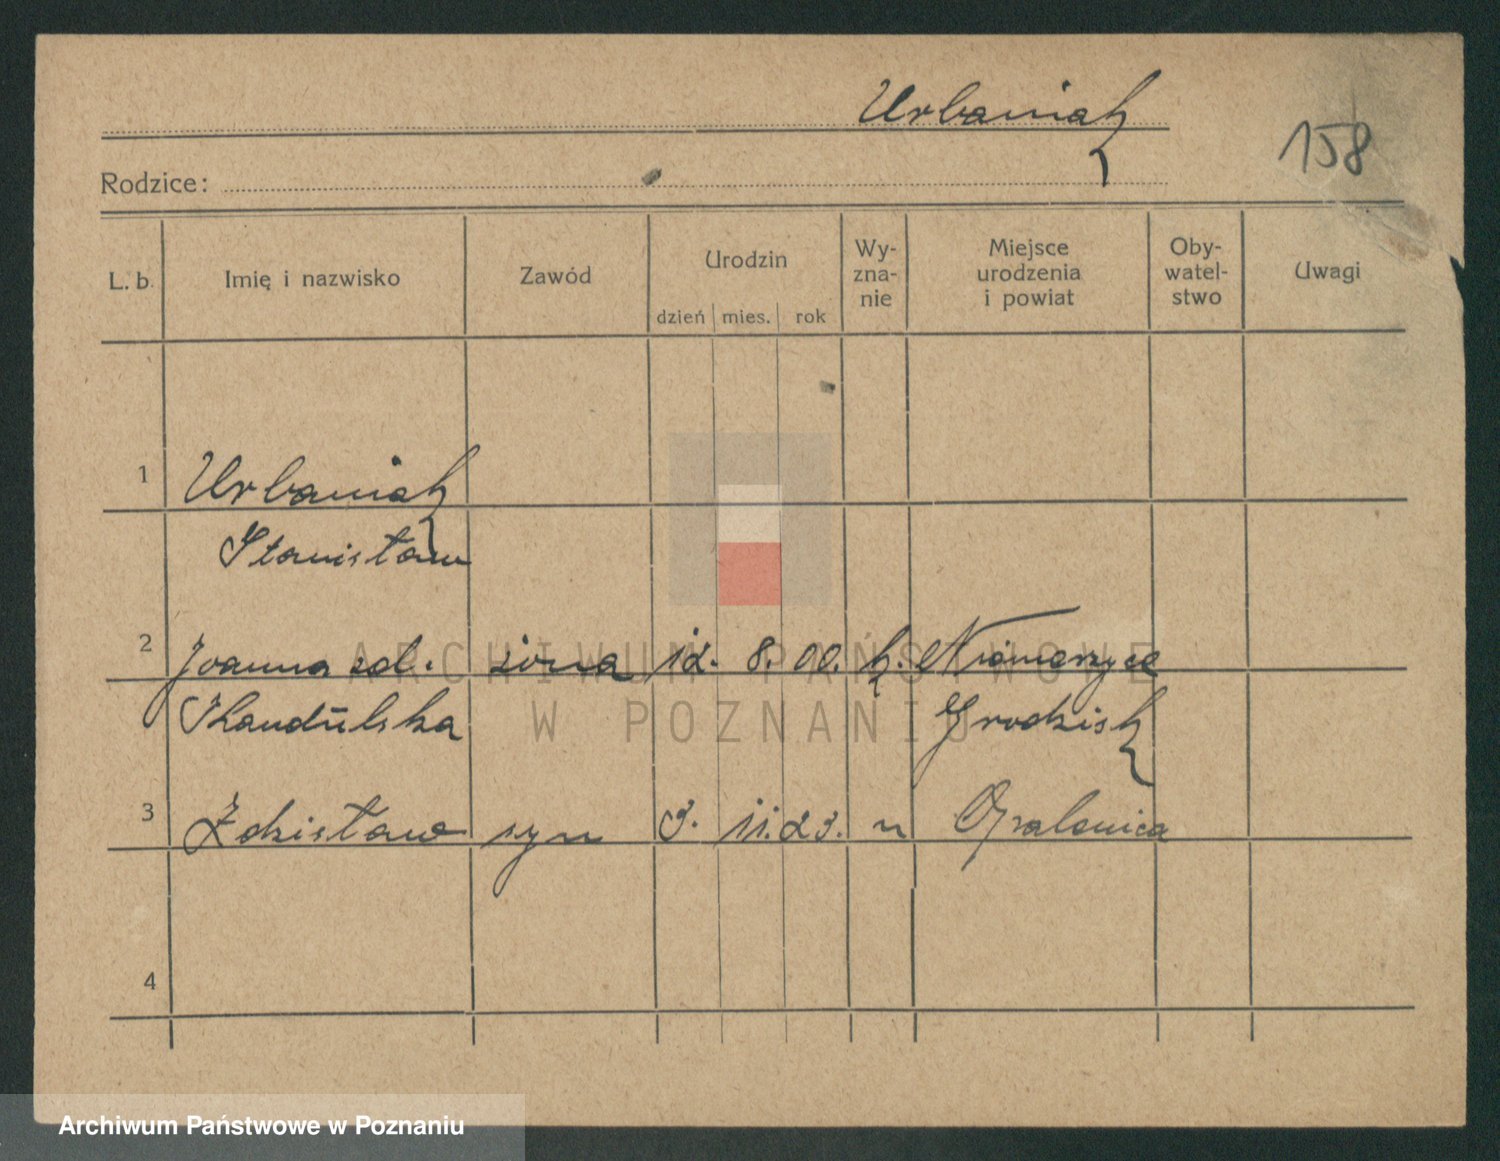 Urbaniak
158
Rodzice:
L. b. Imię i nazwisko Zawód Urodzin Wy-
zna-
nie Miejsce
urodzenia
i powiat Oby-
watel-
stwo Uwagi
dzień mies. rok
1 Urbaniak
Stanisław
2 Joanna zd. żona 12. 8. 00. k. Niemerzyce
Kandulska Grodzisk
3 Zdzisław syn 3. 11. 23. " Opalenica
4
ARCHIWUM PAŃSTWOWE
W POZNANIU
Archiwum Państwowe w Poznaniu